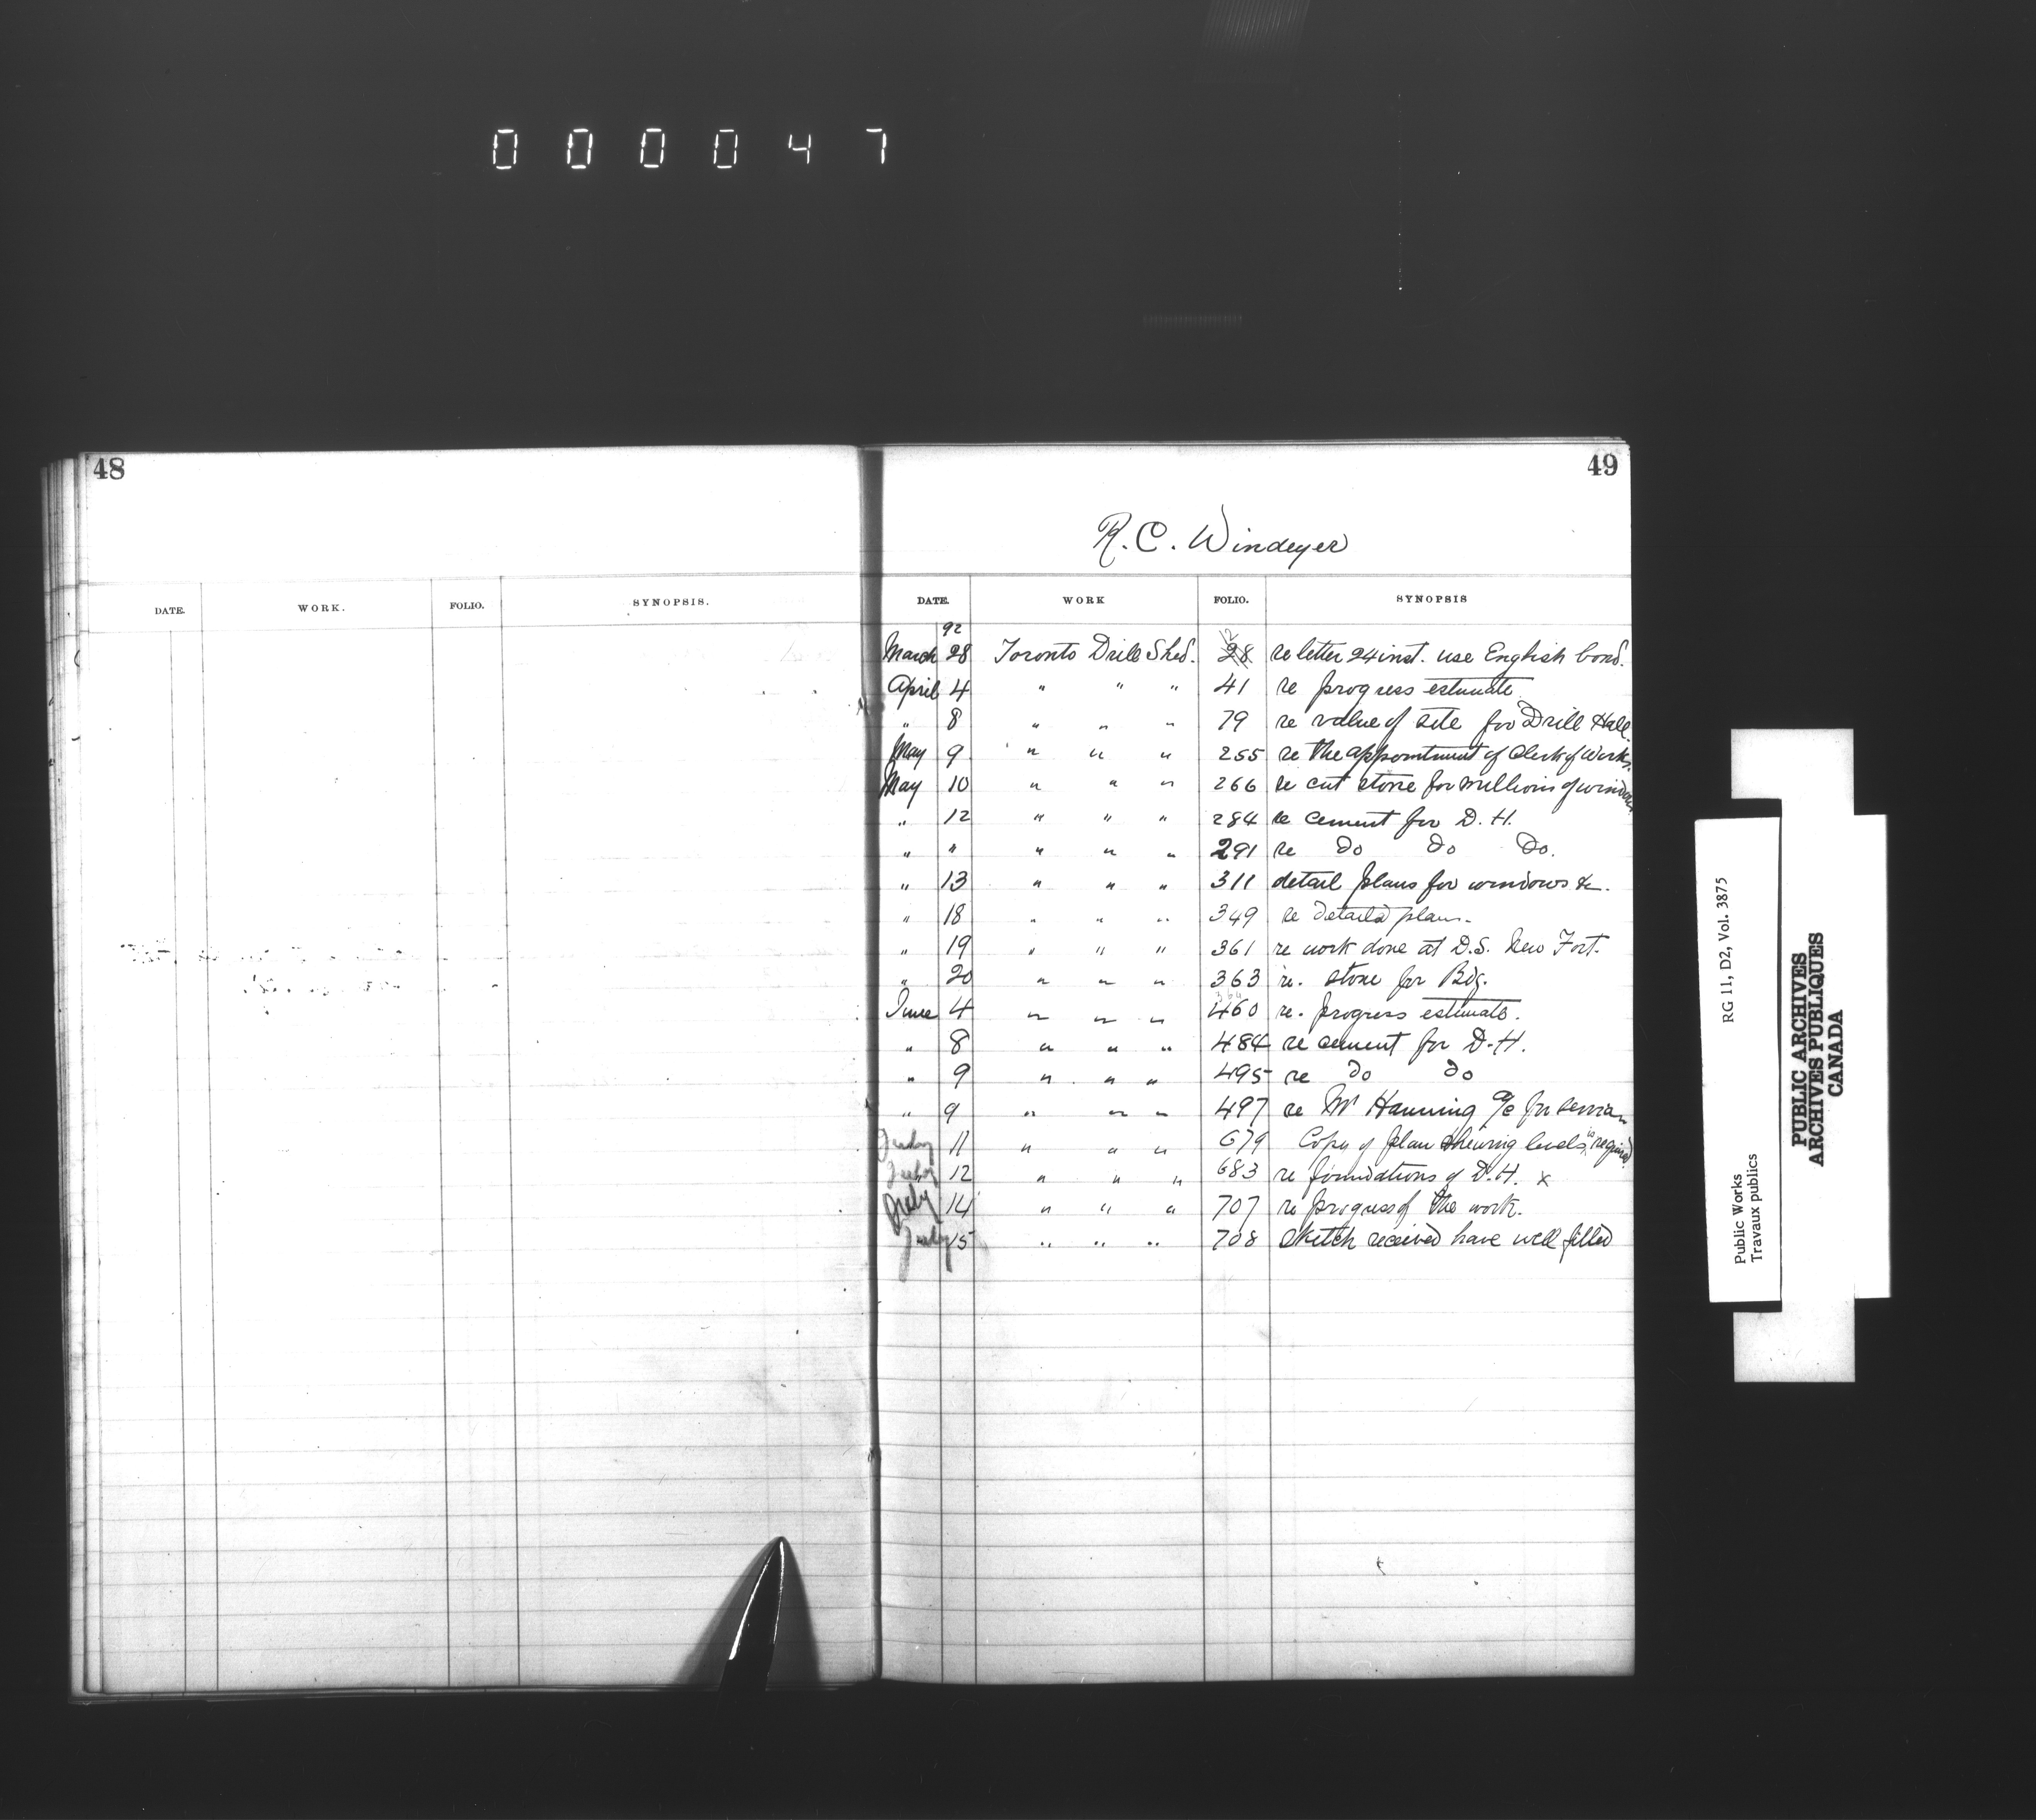 000047
48
49
R. C. Windeyer
DATE. WORK. FOLIO. SYNOPSIS.
DATE. WORK FOLIO. SYNOPSIS
92
March 28 Toronto Drill Shed. 12 28 re letter 24 inst. use English bond.
April 4 " " " 41 re progress estimate
" 8 " " " 79 re value of site for Drill Hall.
May 9 " " " 255 re the appointment of Clerk of Works.
May 10 " " " 266 re cut stone for mullions of windows
" 12 " " " 284 re cement for D. H.
" " " " " 291 re do do do.
" 13 " " " 311 detail plans for windows &c.
" 18 " " " 349 re detailed plans.
" 19 " " " 361 re work done at D.S. New Fort.
" 20 " " " 363 re. stone for Bdg.
June 4 " " " 460 re. progress estimate.
" 8 " " " 484 re cement for D.H.
" 9 " " " 495 re do do
" 9 " " " 497 re Mr Hanning a/c for services
July 11 " " " 679 Copy of plan shewing levels is required
July 12 " " " 683 re foundations of D.H. x
July 14 " " " 707 re progress of the work.
July 15 " " " 708 Sketch received have well filled
RG 11, D2, Vol. 3875
Public Works
Travaux publics
PUBLIC ARCHIVES
ARCHIVES PUBLIQUES
CANADA